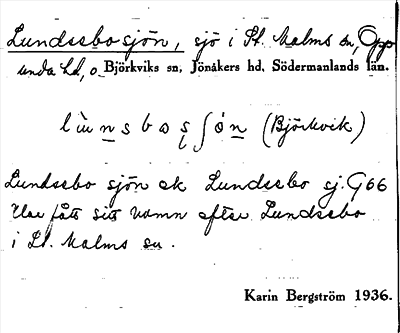 Lundsebosjön, sjö i St. Malms sn, Opp
unda hd, o. Björkviks sn, Jönåkers hd, Södermanlands län.
(Björkvik)
Lundsebo sjön ek Lundsebo sj. G66
Har fått sitt namn efter Lundsebo
i St. Malms sn.
Karin Bergström 1936.